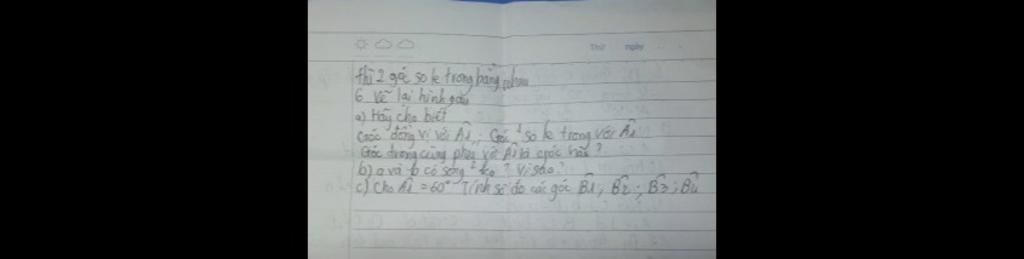 Thứ ngày
thì 2 góc so le trong bằng nhau
6 Vẽ lại hình sau
a) Hãy cho biết
Góc đồng vị với Â1, Góc so le trong với Â1
Góc trong cùng phía với Â1 là góc nào?
b) a và b có song² ko? Vì sao?
c) Cho Â1 = 60° Tính số đo các góc B̂1; B̂2; B̂3; B̂4